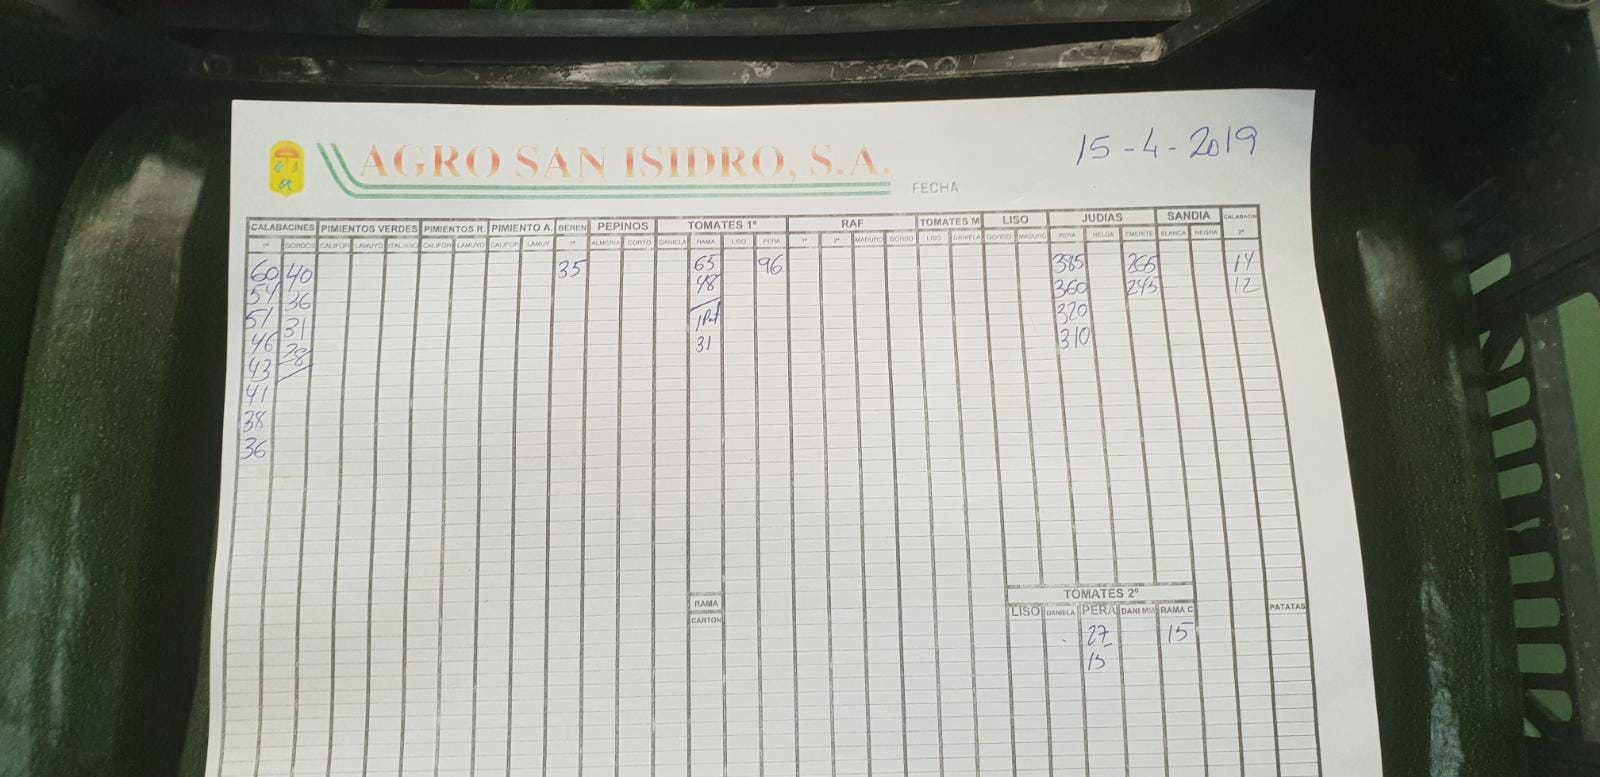 AGRO SAN ISIDRO, S.A.
FECHA
15-4-2019
CALABACINES PIMIENTOS VERDES PIMIENTOS R. PIMIENTO A. BEREN PEPINOS TOMATES 1ª RAF TOMATES M LISO JUDIAS SANDIA CALABACIN
1ª GORDOS CALIFOR LAMUYO ITALIANO CALIFOR LAMUYO CALIFOR LAMUY 1ª ALMERIA CORTO DANIELA RAMA LISO PERA 1ª 2ª MADURO GORDO LISO DANIELA GORDO MADURO XERA HELDA EMERITE BLANCA NEGRA 2ª
60 40 35 65 96 385 265 14
54 36 48 360 245 12
51 31 320
46 28 31 310
43
41
38
36
TOMATES 2º
RAMA LISO DANIELA PERA RAMA C PATATAS
CARTON
27 15
15